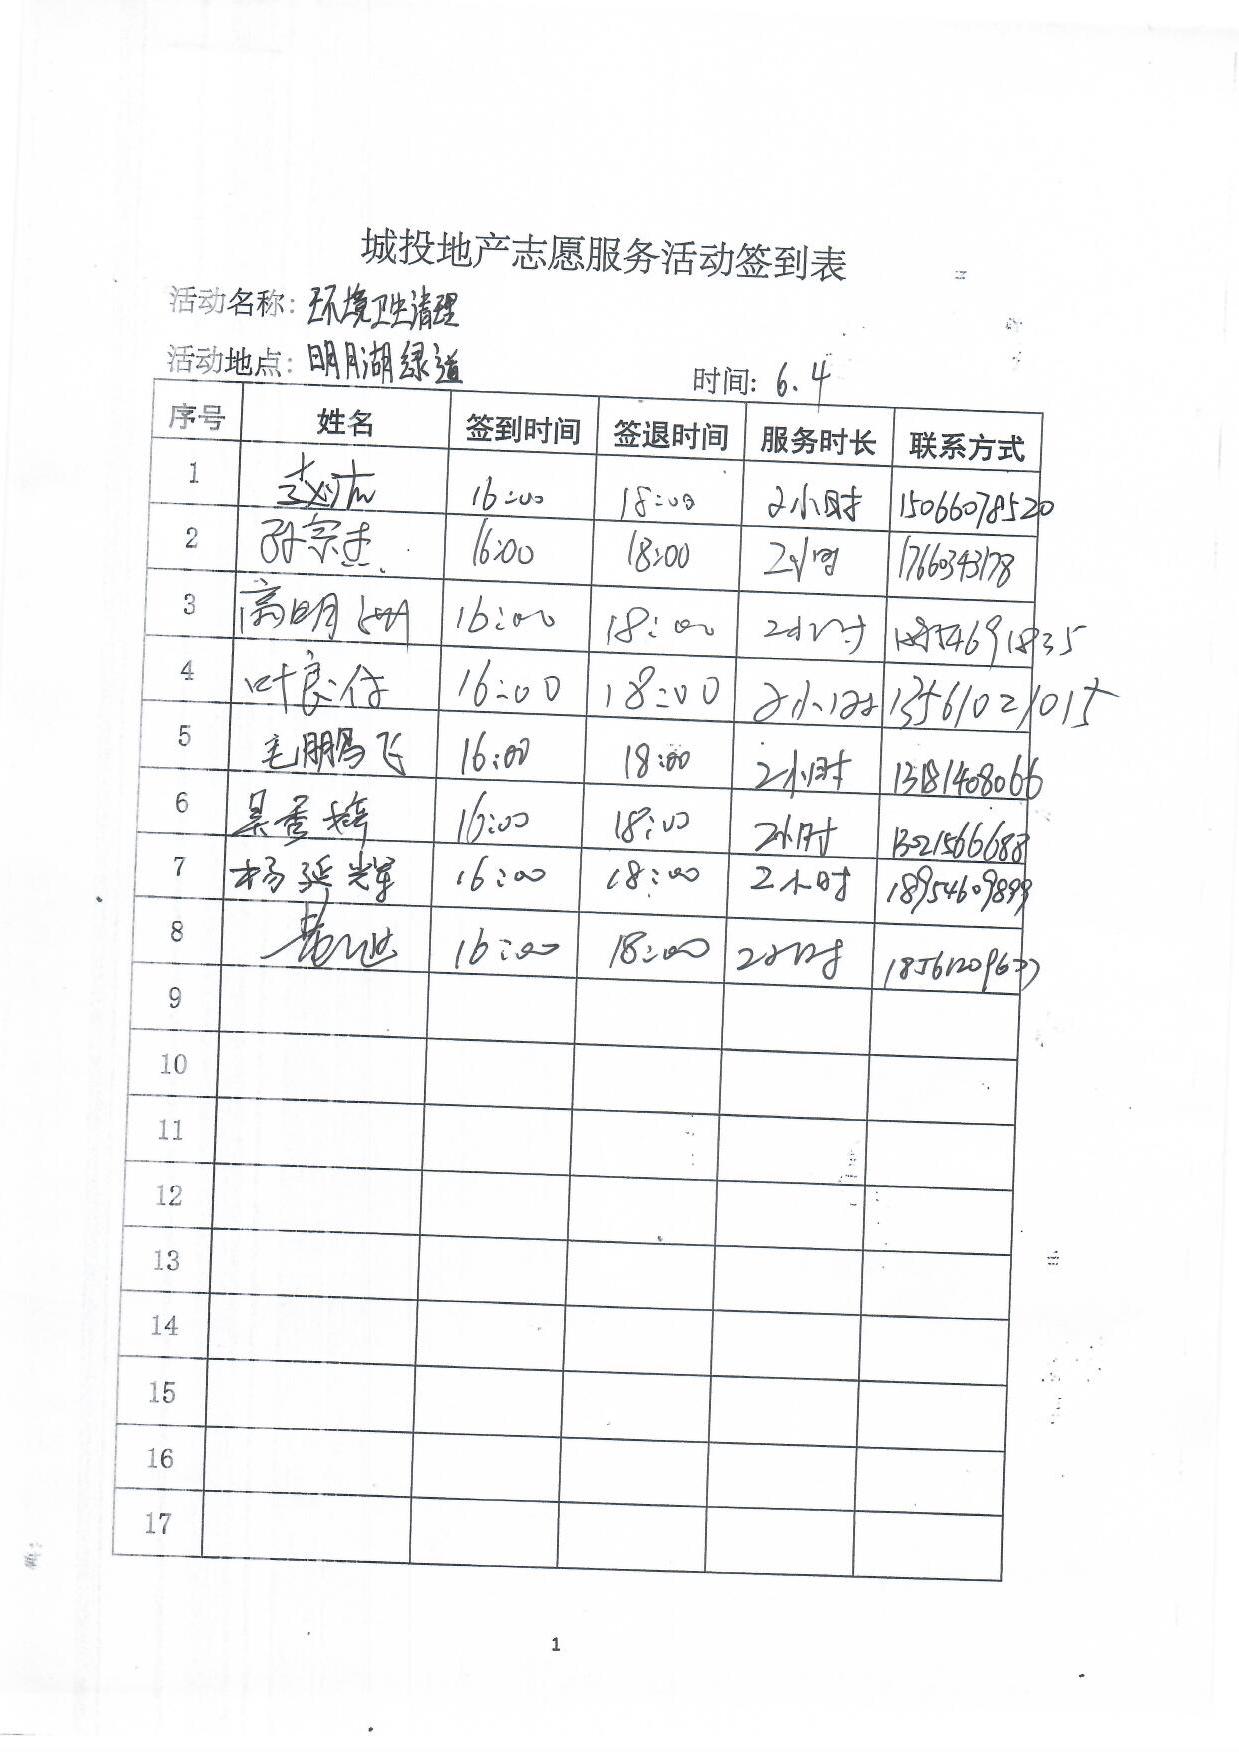 城投地产志愿服务活动签到表
活动名称: 环境卫生清理
活动地点: 明月湖绿道 时间: 6.4
序号 姓名 签到时间 签退时间 服务时长 联系方式
1 16:00 18:00 2小时 15066078520
2 孙宗杰 16:00 18:00 2小时 17660343178
3 高明 16:00 18:00 2小时 18954691835
4 叶良仔 16:00 18:00 2小时 13561021015
5 毛鹏飞 16:00 18:00 2小时 13181408066
6 吴秀婷 16:00 18:00 2小时 13021566688
7 杨延辉 16:00 18:00 2小时 18954609899
8 16:00 18:00 2小时
9
10
11
12
13
14
15
16
17
1